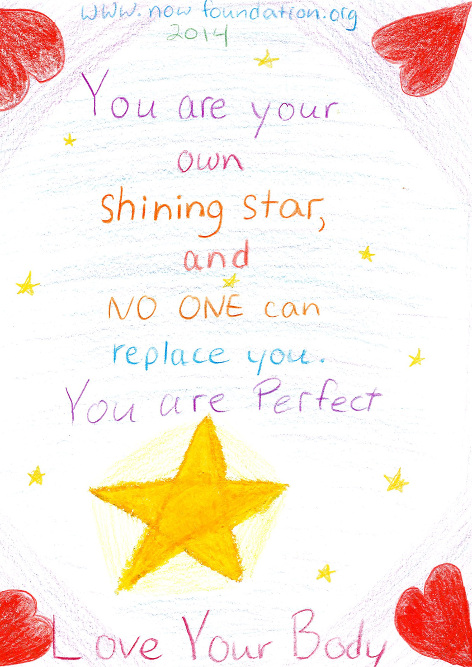 www.nowfoundation.org
2014
You are your
own
shining star,
and
NO ONE can
replace you.
You are Perfect
Love Your Body